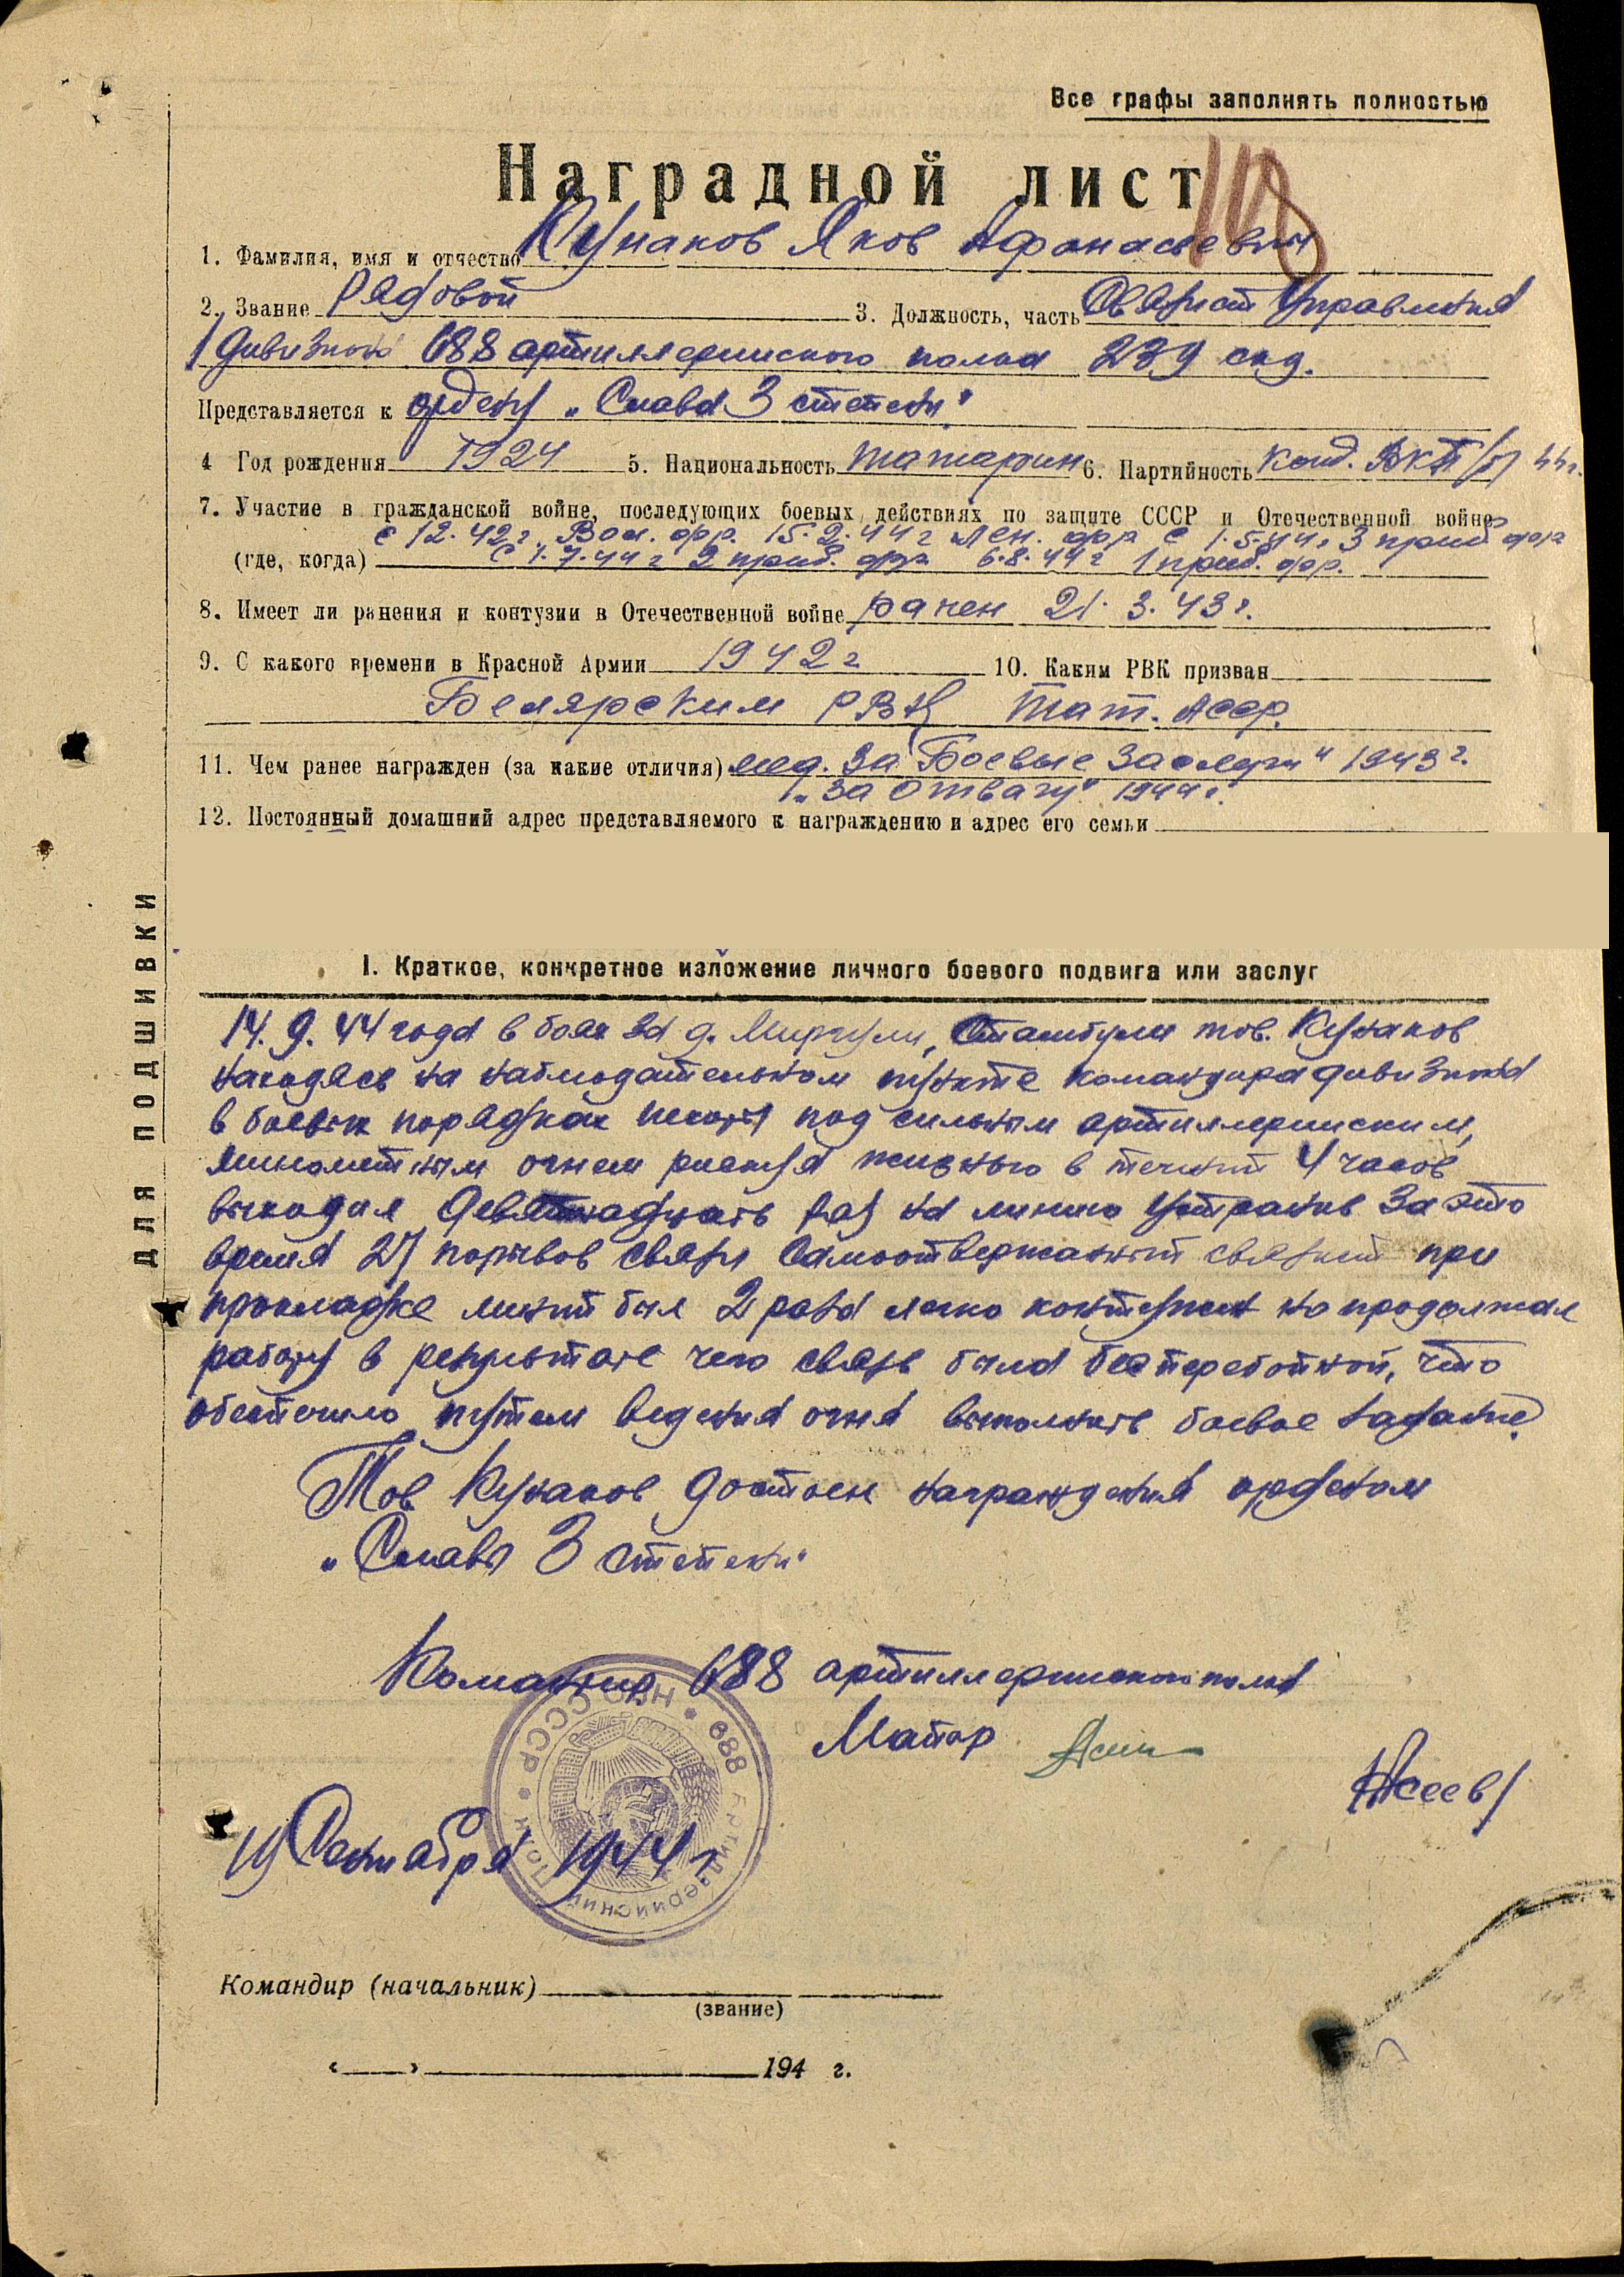 Все графы заполнять полностью
Наградной лист
1. Фамилия, имя и отчество Кунаков Яков Афанасьевич
2. Звание Рядовой 3. Должность, часть Связист Управления
1 дивизиона 688 артиллерииского полка 239 скд.
Представляется к ордену „Слава 3 степени"
4 Год рождения 1924 5. Национальность татарин 6. Партийность канд. ВКП/б/ 44г.
7. Участие в гражданской войне, последующих боевых действиях по защите СССР и Отечественной войне
с 12.42г. Вол. фр. 15.2.44г Лен. фр с 1.5.44г 3 приб фр
(где, когда) с 1.7.44г 2 приб. фр 6.8.44г 1 приб. фр.
8. Имеет ли ранения и контузии в Отечественной войне ранен 21.3.43г.
9. С какого времени в Красной Армии 1942г 10. Каким РВК призван
Белярским РВК Тат. АССР.
11. Чем ранее награжден (за какие отличия) мед. За Боевые Заслуги" 1943г.
„За Отвагу" 1944г.
12. Постоянный домашний адрес представляемого к награждению и адрес его семьи
ДЛЯ ПОДШИВКИ
I. Краткое, конкретное изложение личного боевого подвига или заслуг
14.9.44 года в боях за д. Стамбули тов. Кунаков
находясь на наблюдательном пункте командира дивизиона
в боевых порядках пехоты под сильным артиллерииским,
минометным огнем рискуя жизнью в течении 4 часов
выходил девятнадцать раз на линию Устранив За это
время 27 порывов связи Самоотверженный связист при
прокладке линии был 2 раза легко контужен но продолжал
работу в результате чего связь была бесперебойной, что
обеспечило путем ведения огня выполнить боевое задание.
Тов Кунаков достоен награждения орденом
„Славы 3 степени"
Командир 688 артиллериискогополка
Маиор
/Асеев/
19 Сентября 1944 г.
НКО СССР * 688 Артиллерийский Полк *
Командир (начальник)
(звание)
« » 194 г.